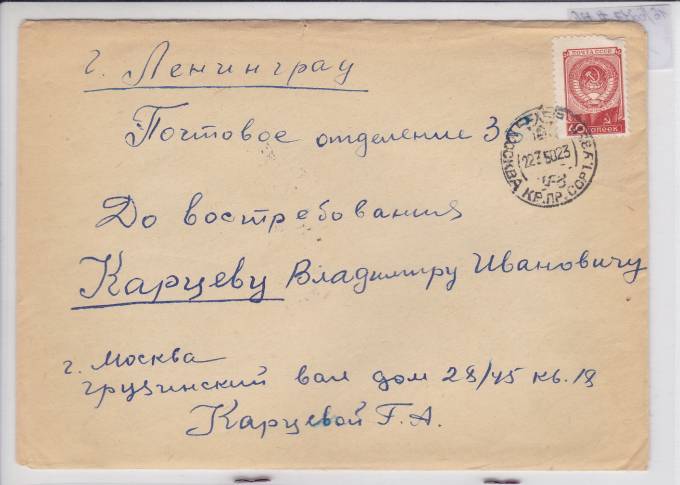 г. Ленинград
Почтовое отделение 3
До востребования
Карцеву Владимиру Ивановичу
г. Москва
грузинский вал дом 28/45 кв. 18
Карцевой Г.А.
ПОЧТА СССР
КОПЕЕК
МОСКВА КР.ПР.СОРТ.
2235023